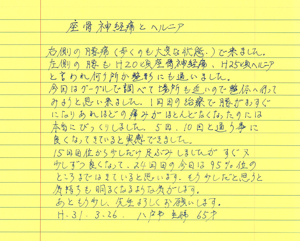 座骨神経痛とヘルニア
右側の腰痛（歩くのも大変な状態）で来ました。
左側の腰もH20頃座骨神経痛、H25頃ヘルニア
と言われ何ヶ所か整形にも通いました。
今回はグーグルで調べて場所も近いので整体へ行って
みようと思い来ました。1回目の治療で腰がおもすぐ
になりあれほどの痛みがほとんどなくなったのには
本当にびっくりしました。5回、10回と通う毎に
良くなってきていると実感できました。
15回目位から少しだけ足ぶみしましたがすぐ又
少しずつ良くなって、24回目の今日は95％位の
ところまではきていると思います。もう少しだと思うと
気持ちも明るくなるような気がします。
あともう少し、先生よろしくお願いします。
H.31.3.26. 八戸市 65才